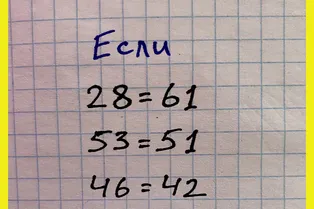 Если
28=61
53=51
46=42